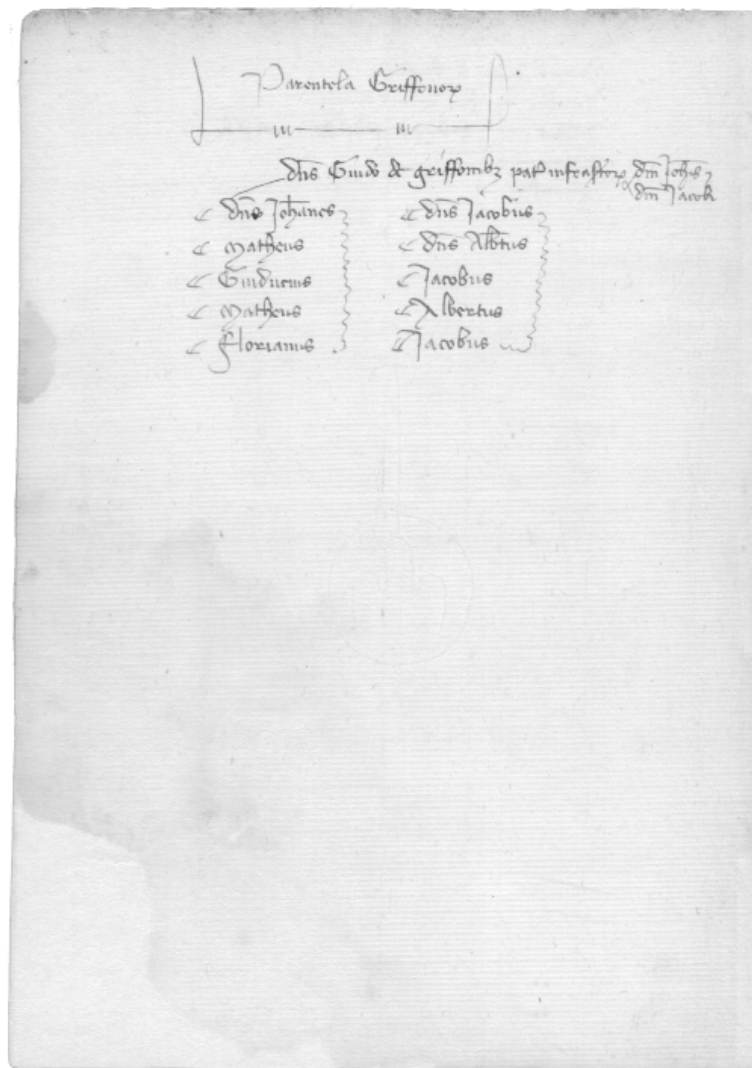 Parentela Griffonoꝝ
dn̄s Guido de griffonibꝫ pat̄ infraſc̄toꝝ dn̄i Joh̄is ⁊
dn̄i Jacobi
dn̄s Joh̄anes
Matheus
Guiducius
Matheus
Florianus
dn̄s Jacobus
dn̄s Alb̄tus
Jacobus
Albertus
Jacobus